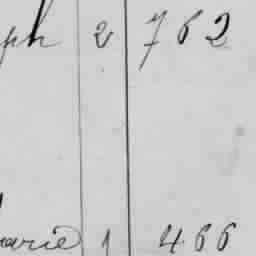 ph 2 762
arie 1 466